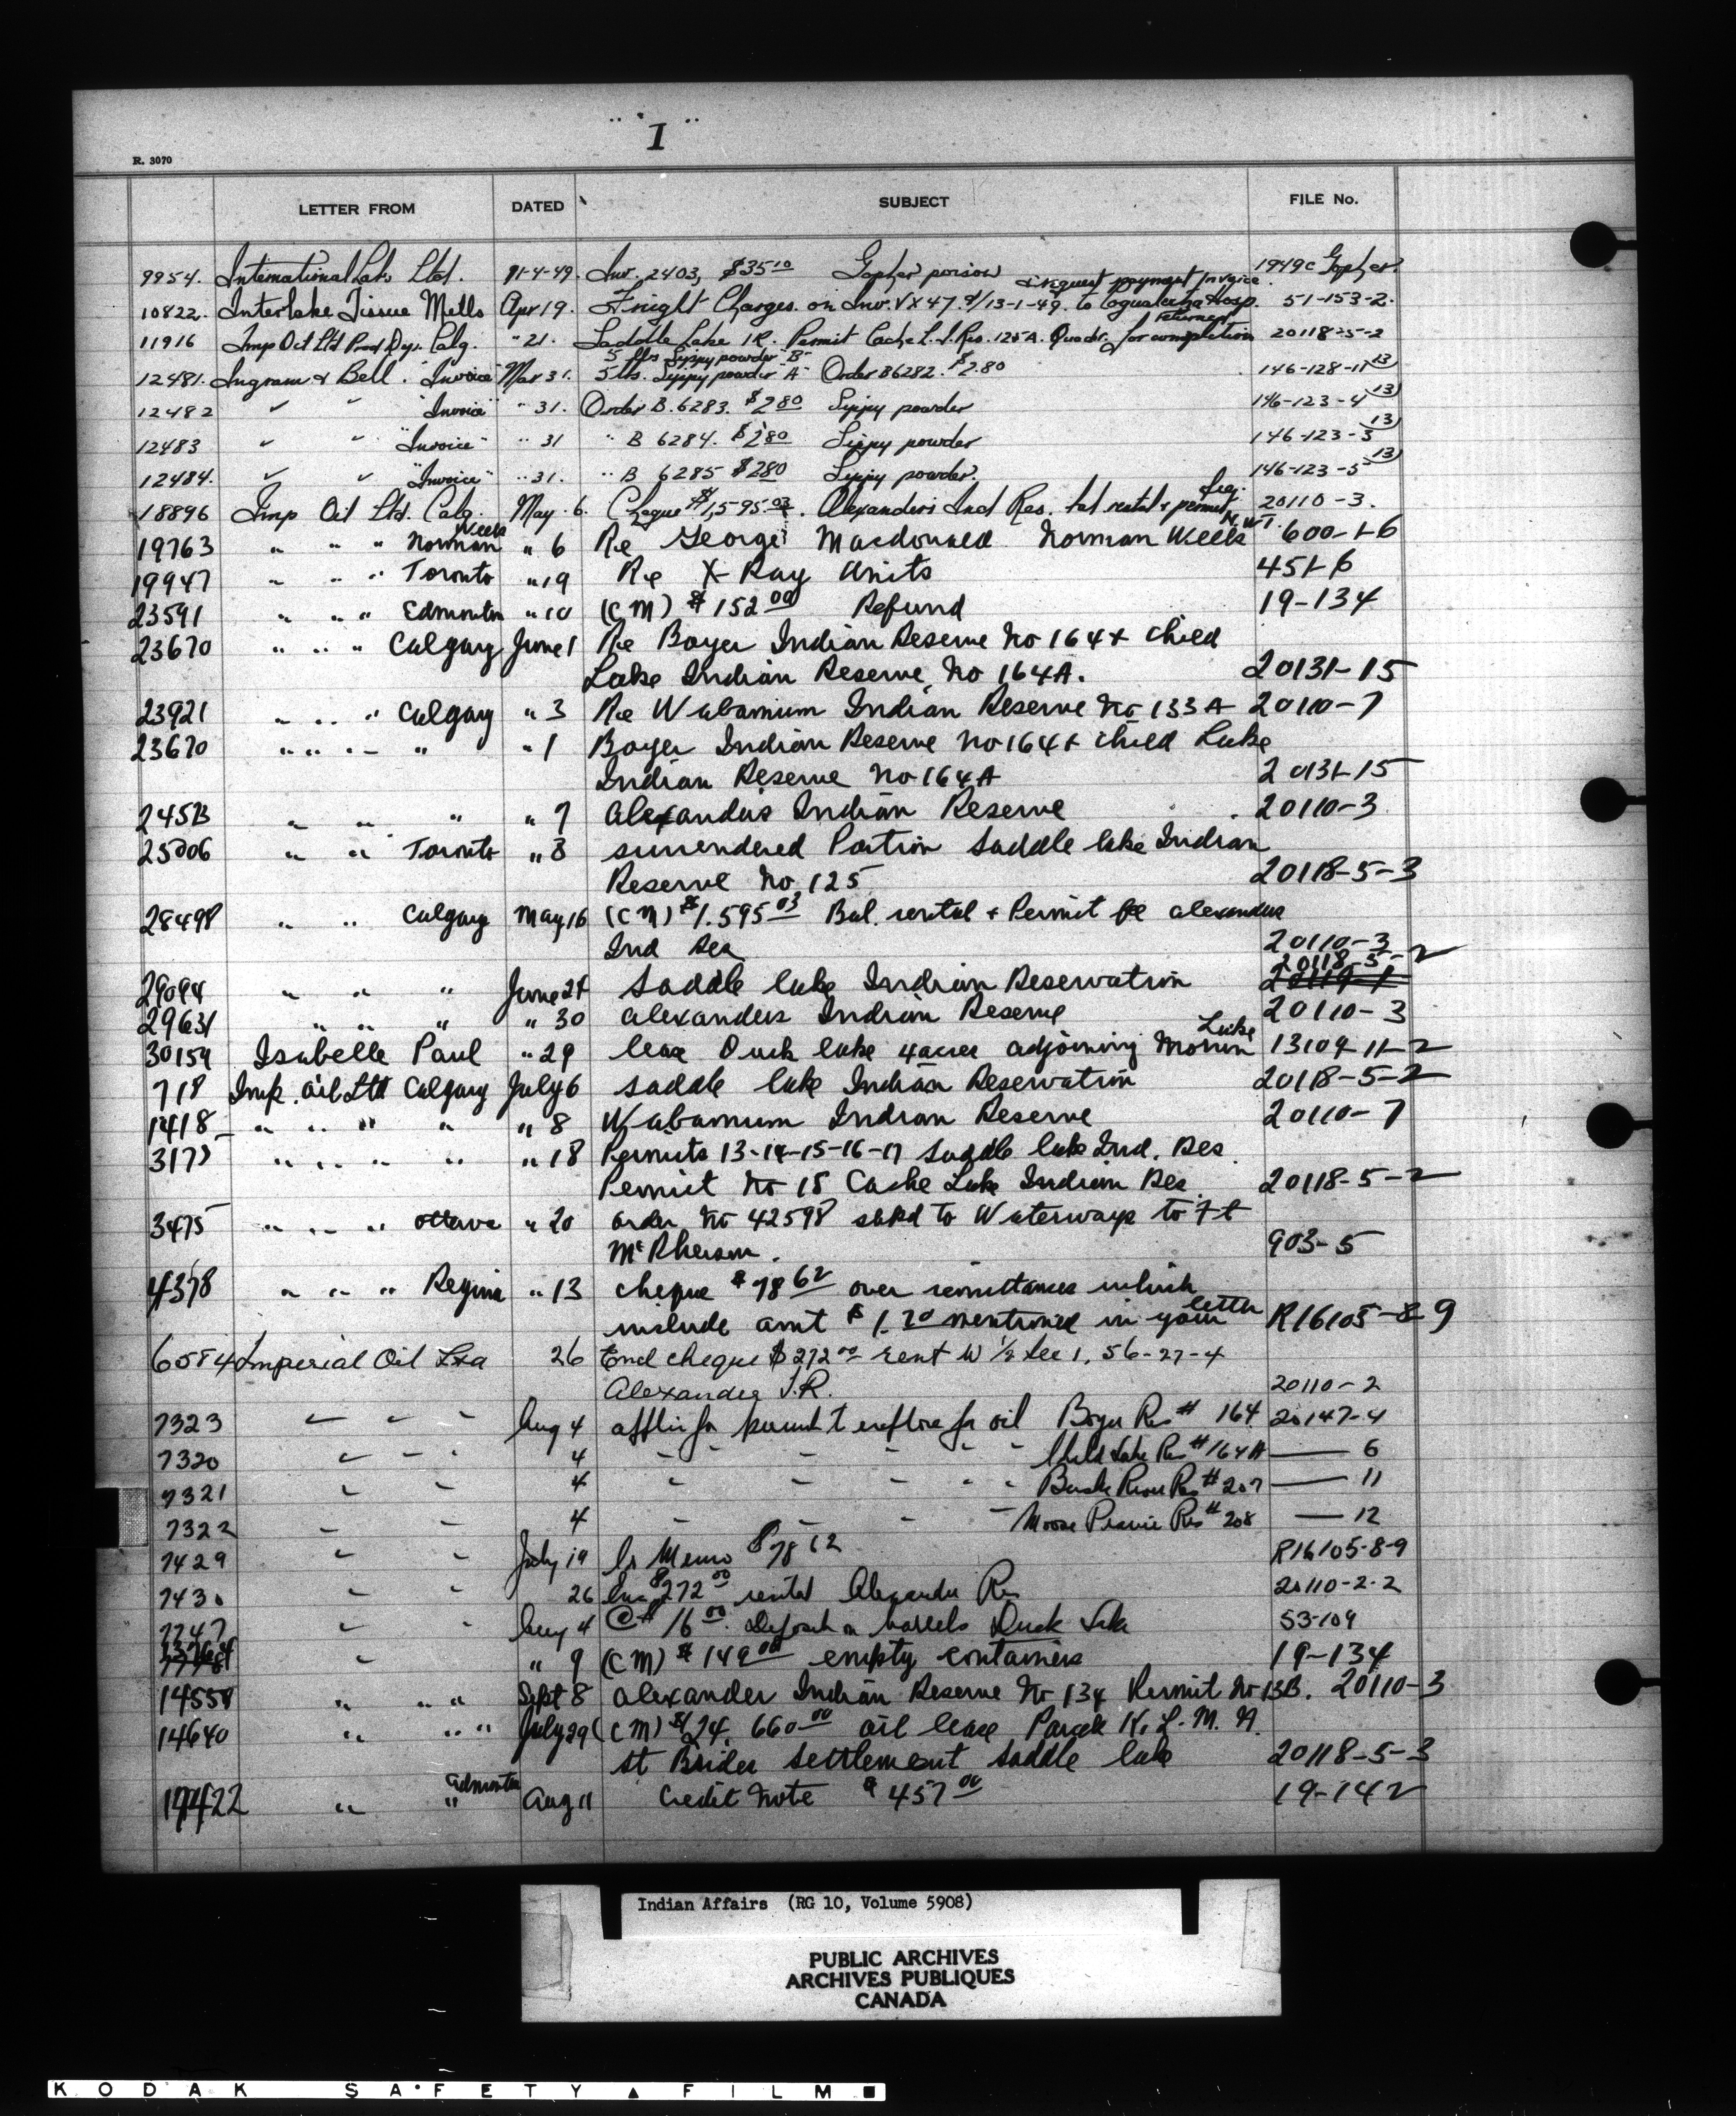 "I"
R. 3070
LETTER FROM DATED SUBJECT FILE No.
9954. International Lab. Ltd. 11-4-49. Inv. 2403, $35 10 Gopher poison 1949c Gopher.
request payment Invoice
10822. Interlake Tissue Mills Apr 19. Freight Charges on Inv. VX47 d/13-1-49. to Hosp. 51-153-2.
returned
11916 Imp Oil Ltd Prod Dept. Calg. " 21. Saddle Lake IR. Permit Cache L. I. Res. 125A. for completion 20118-5-2
5 lbs Sippy powder "B"
12481. Ingram & Bell. "Invoice" Mar 31. 5 lbs. Sippy powder "A" Order B6282. $2.80 146-128-11 (13)
12482 " " "Invoice" " 31. Order B.6283. $2 80 Sippy powder 146-123-4 (13)
12483 " " "Invoice" " 31 " B 6284. $2 80 Sippy powder 146-123-3 (13)
12484. " " "Invoice" " 31. " B 6285 $2 80 Sippy powder. 146-123-5 (13)
18896 Imp Oil Ltd. Calg. May 6. Cheque $1,595 03. Alexanders Ind Res. bal rental & permit 20110-3.
19763 " " " Norman Wells " 6 Re George Macdonald Norman Wells N.W.T. 600-1-6
19947 " " " Toronto " 19 Re X-Ray Units 451-6
23591 " " " Edmonton " 10 (CM) $152 00 Refund 19-134
23670 " " " Calgary June 1 Re Boyer Indian Reserve No 164 + Child
Lake Indian Reserve No 164A. 20131-15
23921 " " " Calgary " 3 Re Wabamum Indian Reserve No 133A 20110-7
23670 " " " " " 1 Boyer Indian Reserve No 164 + Child Lake
Indian Reserve No 164A 20131-15
24513 " " " " 7 Alexanders Indian Reserve 20110-3
25006 " " Toronto " 8 surrendered Portion Saddle lake Indian
Reserve No 125 20118-5-3
28498 " " Calgary May 16 (CM) $1.595 03 Bal. rental + Permit fee alexander
Ind Res 20110-3
20118-5-2
29094 " " " June 24 Saddle lake Indian Reservation
29631 " " " " 30 alexanders Indian Reserve 20110-3
30159 Isabelle Paul " 29 lease Duck lake 4 acres adjoining Morin Lake 13109-11-2
718 Imp. Oil Ltd Calgary July 6 saddle lake Indian Reservation 20118-5-2
1418 " " " " " 8 Wabamum Indian Reserve 20110-7
3175 " " " " " 18 Permits 13-14-15-16-17 saddle lake Ind. Res.
Permit No 18 Cache Lake Indian Res. 20118-5-2
3475 " " " ottawa " 20 order No 42598 shpd to Waterways to Ft
McPherson. 903-5
4378 " " " Regina " 13 cheque $78 62 over remittances which
include amt $1.20 mentioned in your letter R16105-8-9
6584 Imperial Oil Ltd 26 Encl cheque $272 00 rent W 1/2 Sec 1, 56-27-4
Alexander I.R. 20110-2
7323 " " " Aug 4 applin for permit to explore for oil Boyer Res # 164 20147-4
7320 " " " 4 " " " " " " Child Lake Res # 164A — 6
7321 " " 4 " " " " " Bushe River Res # 207 — 11
7322 " " 4 " " " " " Moose Prairie Res # 208 — 12
7429 " " July 19 Cr Memo $78 62 R16105-8-9
7430 " " 26 $272 00 rental Alexander Res 20110-2-2
7747 " " Aug 4 16 00 Deposit on barrels Duck Lake 53-109
" " 9 (CM) $149 00 empty containers 19-134
14558 " " " Sept 8 alexander Indian Reserve No 134 Permit No 13B. 20110-3
14640 " " " July 29 (CM) $24,660 00 oil lease Parcels K. L. M. N.
St Brides settlement saddle lake 20118-5-3
17422 " " Edmonton Aug 11 Credit Note $457 00 19-142
Indian Affairs (RG 10, Volume 5908)
PUBLIC ARCHIVES
ARCHIVES PUBLIQUES
CANADA
KODAK SAFETY FILM